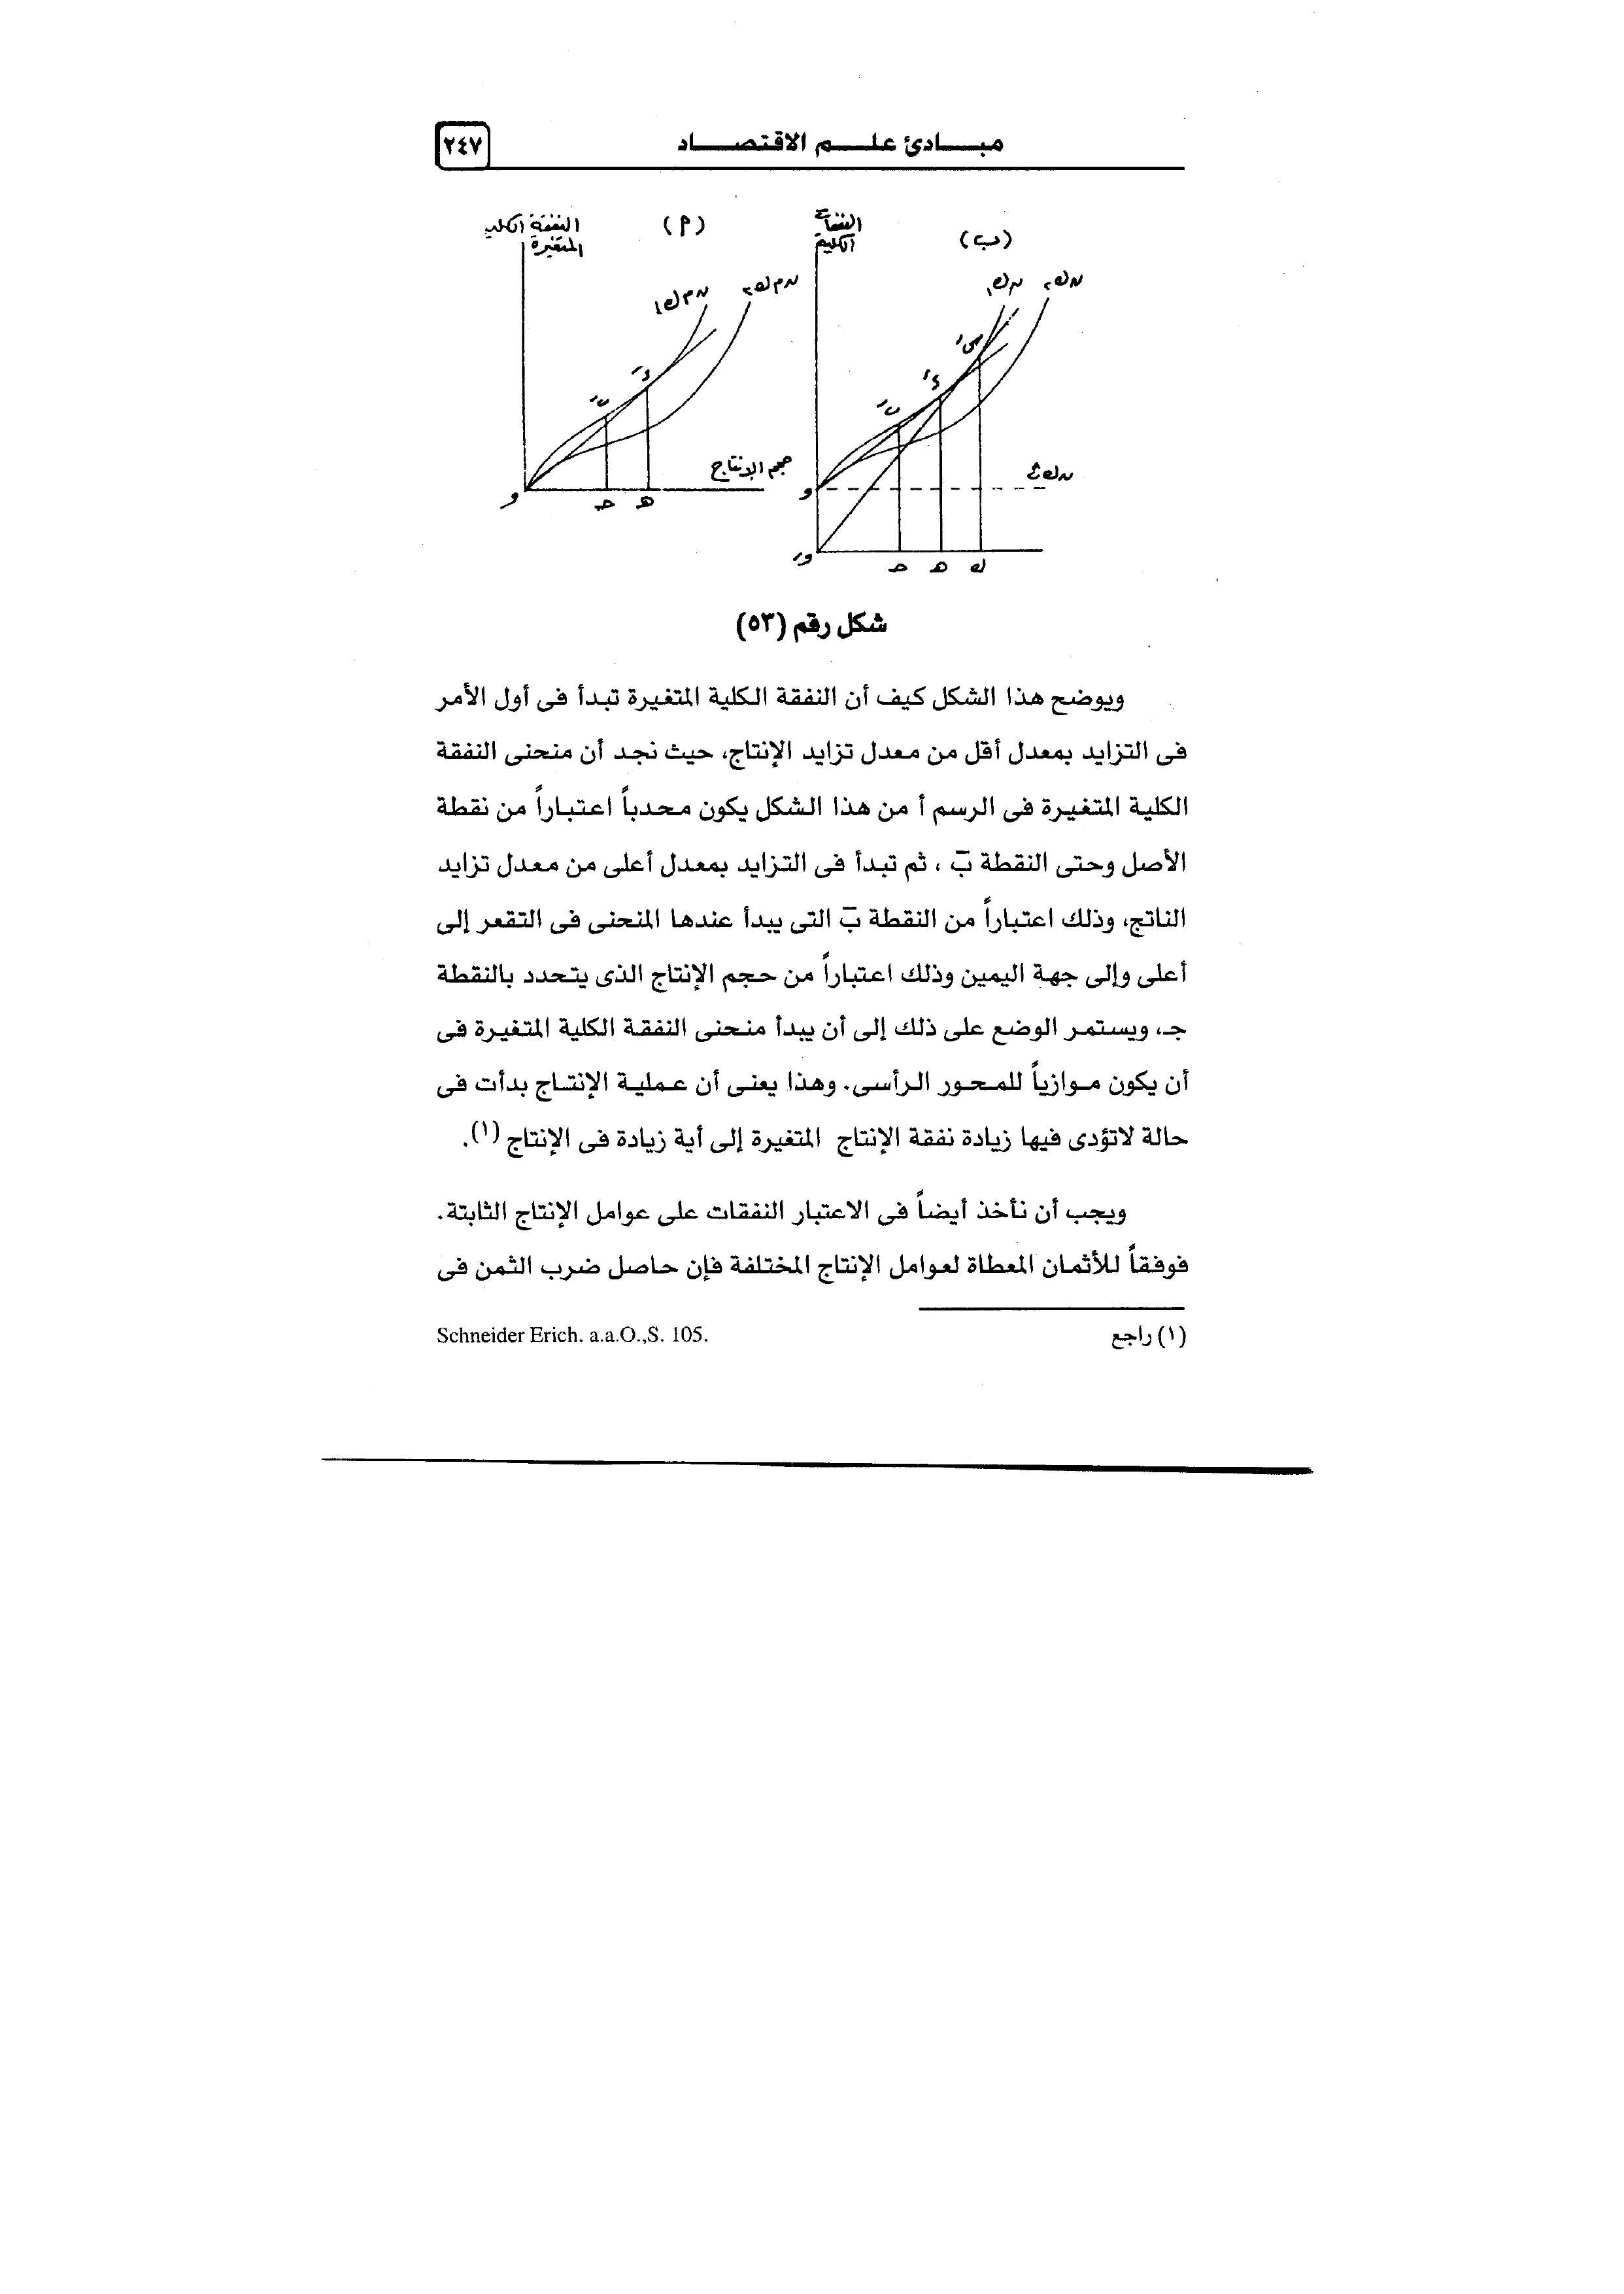 مبادئ علم الاقتصاد
٢٤٧
(ب)
النفقات
الكلية
(أ)
النفقة الكلية
المتغيرة
حجم الإنتاج
و
حـ
هـ
و
حـ
هـ
ك
شكل رقم (٥٣)
ويوضح هذا الشكل كيف أن النفقة الكلية المتغيرة تبدأ فى أول الأمر
فى التزايد بمعدل أقل من معدل تزايد الإنتاج، حيث نجد أن منحنى النفقة
الكلية المتغيرة فى الرسم أ من هذا الشكل يكون محدباً اعتباراً من نقطة
الأصل وحتى النقطة بَ ، ثم تبدأ فى التزايد بمعدل أعلى من معدل تزايد
الناتج، وذلك اعتباراً من النقطة بَ التى يبدأ عندها المنحنى فى التقعر إلى
أعلى وإلى جهة اليمين وذلك اعتباراً من حجم الإنتاج الذى يتحدد بالنقطة
جـ، ويستمر الوضع على ذلك إلى أن يبدأ منحنى النفقة الكلية المتغيرة فى
أن يكون موازياً للمحور الرأسى. وهذا يعنى أن عملية الإنتاج بدأت فى
حالة لاتؤدى فيها زيادة نفقة الإنتاج المتغيرة إلى أية زيادة فى الإنتاج (١).
ويجب أن نأخذ أيضاً فى الاعتبار النفقات على عوامل الإنتاج الثابتة.
فوفقاً للأثمان المعطاة لعوامل الإنتاج المختلفة فإن حاصل ضرب الثمن فى
(١) راجع Schneider Erich. a.a.O.,S. 105.